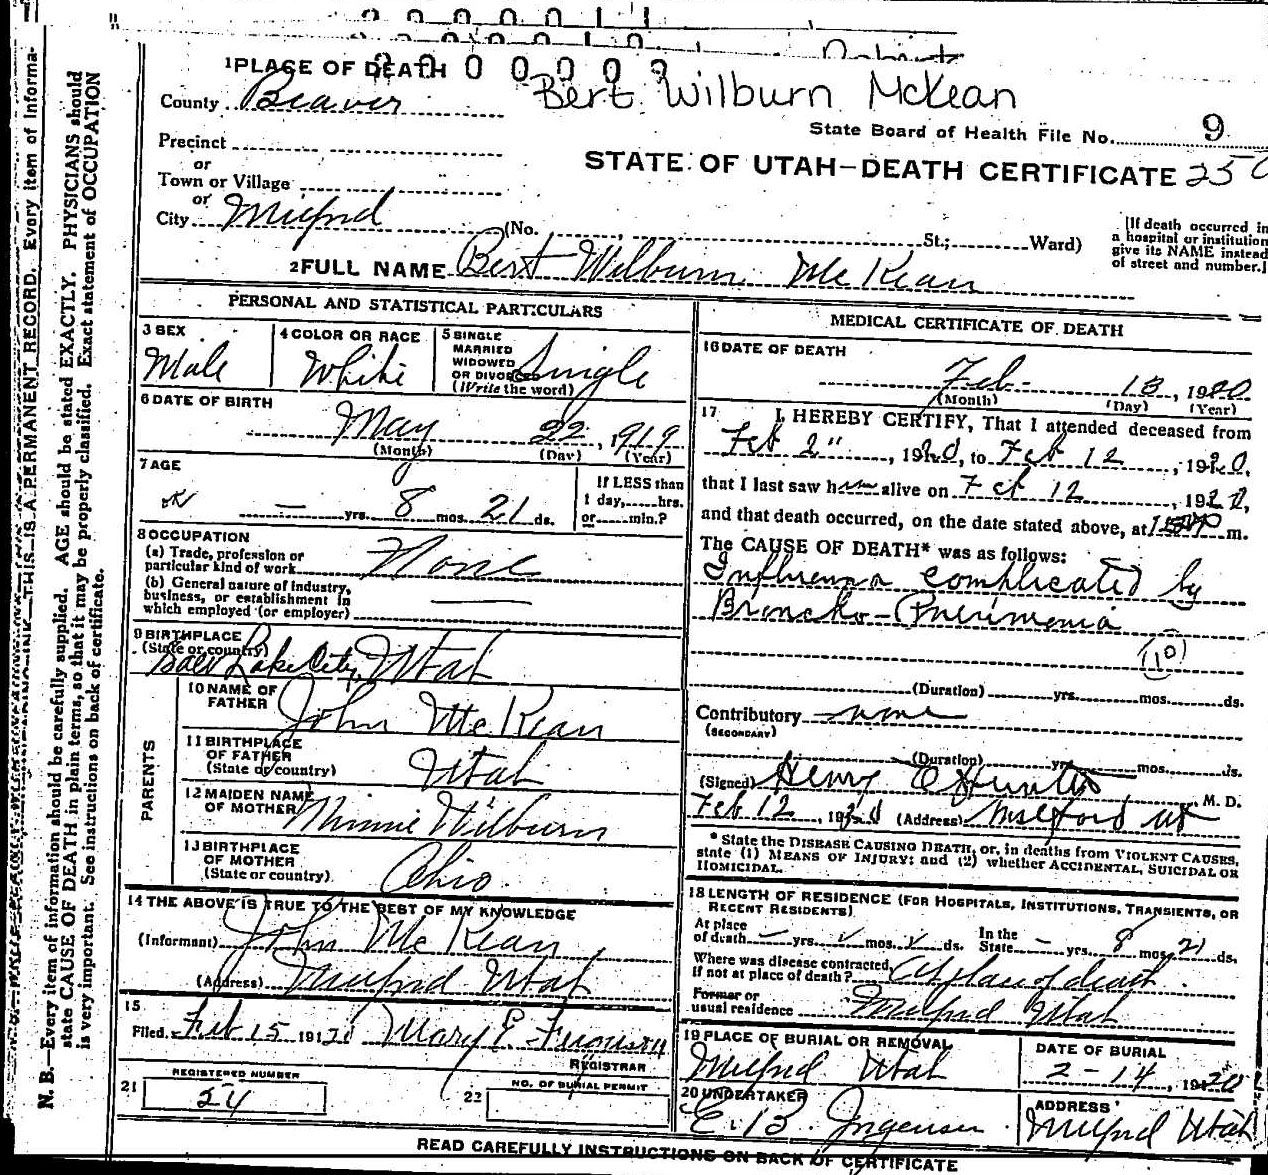 1 PLACE OF DEATH
County Beaver
Bert Wilburn McKean
State Board of Health File No. 9
Precinct
or
Town or Village
or
City Milford
STATE OF UTAH—DEATH CERTIFICATE
(No. St.; Ward)
[If death occurred in
a hospital or institution
give its NAME instead
of street and number.]
2 FULL NAME Bert Wilburn McKean
PERSONAL AND STATISTICAL PARTICULARS
3 SEX
Male
4 COLOR OR RACE
White
5 SINGLE
MARRIED
WIDOWED
OR DIVORCED
(Write the word)
Single
6 DATE OF BIRTH
May 22, 1919
(Month) (Day) (Year)
7 AGE
— yrs. 8 mos. 21 ds.
If LESS than
1 day, hrs.
or min.?
8 OCCUPATION
(a) Trade, profession or
particular kind of work None
(b) General nature of industry,
business, or establishment in
which employed (or employer)
9 BIRTHPLACE
(State or country)
Salt Lake City, Utah
PARENTS
10 NAME OF
FATHER
John McKean
11 BIRTHPLACE
OF FATHER
(State or country)
Utah
12 MAIDEN NAME
OF MOTHER
Minnie Wilburn
13 BIRTHPLACE
OF MOTHER
(State or country)
Ohio
14 THE ABOVE IS TRUE TO THE BEST OF MY KNOWLEDGE
(Informant) John McKean
(Address) Milford Utah
15
Filed Feb 15 1920 Mary E. Ferguson
REGISTRAR
21 REGISTERED NUMBER
22 NO. OF BURIAL PERMIT
MEDICAL CERTIFICATE OF DEATH
16 DATE OF DEATH
Feb 13, 1920
(Month) (Day) (Year)
17 I HEREBY CERTIFY, That I attended deceased from
Feb 2", 1920, to Feb 12, 1920,
that I last saw him alive on Feb 12, 1920,
and that death occurred, on the date stated above, at m.
The CAUSE OF DEATH* was as follows:
Influenza complicated by
Broncho-Pneumonia
(10)
(Duration) yrs. mos. ds.
Contributory none
(SECONDARY)
(Duration) yrs. mos. ds.
(Signed) Henry Hunter, M. D.
Feb 12, 1920 (Address) Milford Ut
* State the DISEASE CAUSING DEATH, or, in deaths from VIOLENT CAUSES,
state (1) MEANS OF INJURY; and (2) whether ACCIDENTAL, SUICIDAL OR
HOMICIDAL.
18 LENGTH OF RESIDENCE (FOR HOSPITALS, INSTITUTIONS, TRANSIENTS, OR
RECENT RESIDENTS)
At place
of death yrs. mos. ds.
In the
State — yrs. 8 mos. 21 ds.
Where was disease contracted,
if not at place of death? At place of death
Former or
usual residence Milford Utah
19 PLACE OF BURIAL OR REMOVAL
Milford Utah
DATE OF BURIAL
2-14, 1920
20 UNDERTAKER
E. B. Jorgensen
ADDRESS
Milford Utah
READ CAREFULLY INSTRUCTIONS ON BACK OF CERTIFICATE
N. B.—Every item of information should be carefully supplied. AGE should be stated EXACTLY. PHYSICIANS should
state CAUSE OF DEATH in plain terms, so that it may be properly classified. Exact statement of OCCUPATION
is very important. See instructions on back of certificate.
THIS IS A PERMANENT RECORD. Every item of informa-